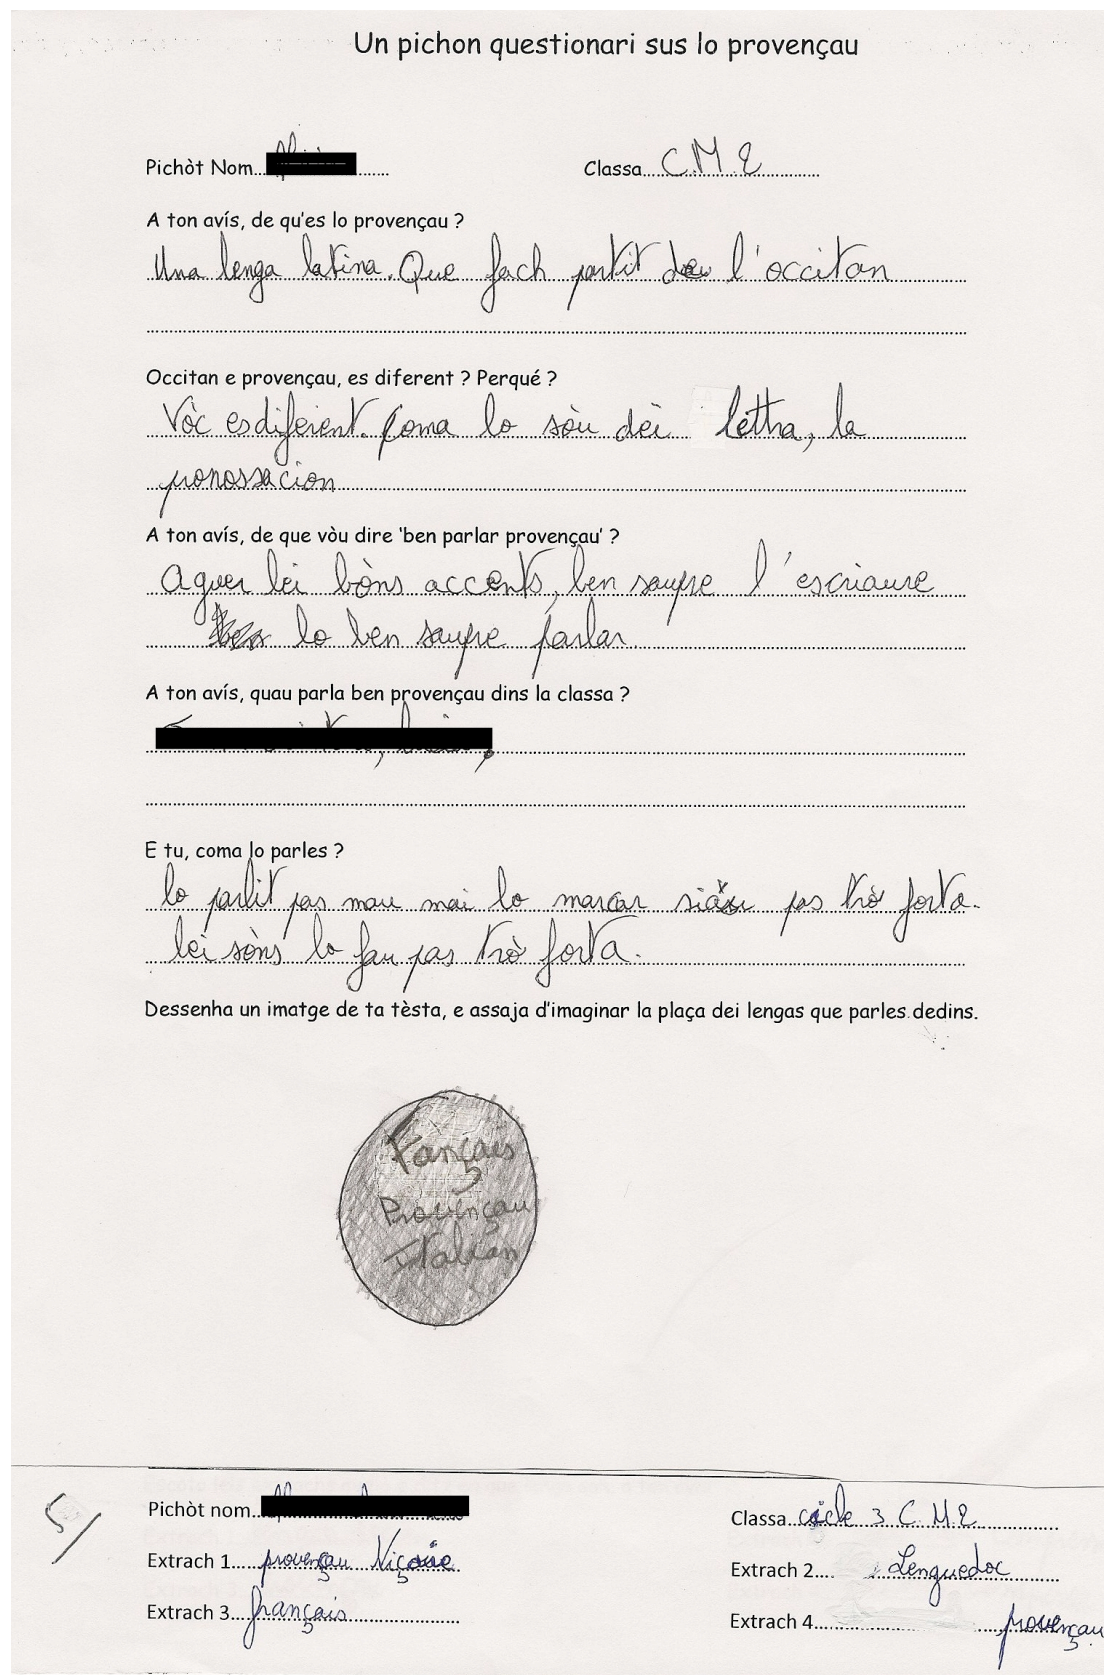 Un pichon questionari sus lo provençau
Pichòt Nom
Classa C.M.2
A ton avís, de qu'es lo provençau ?
Una lenga latina. Que fach partit de l'occitan
Occitan e provençau, es diferent ? Perqué ?
Vòc es diferent. Coma lo sòu dèi letha, la
pronossacion
A ton avís, de que vòu dire 'ben parlar provençau' ?
Aguer lei bòns accents, ben saupre l'escriaure
lo ben saupre parlar
A ton avís, quau parla ben provençau dins la classa ?
E tu, coma lo parles ?
lo parlit pas mau mai lo marcar pas trò forta.
lei sòns lo fau pas trò forta.
Dessenha un imatge de ta tèsta, e assaja d'imaginar la plaça dei lengas que parles dedins.
Fançais
Provençau
Italian
5/
Pichòt nom
Classa cicle 3 C.M.2
Extrach 1 provençau Niçoaie
Extrach 2 Lenguedoc
Extrach 3 français
Extrach 4 provençau